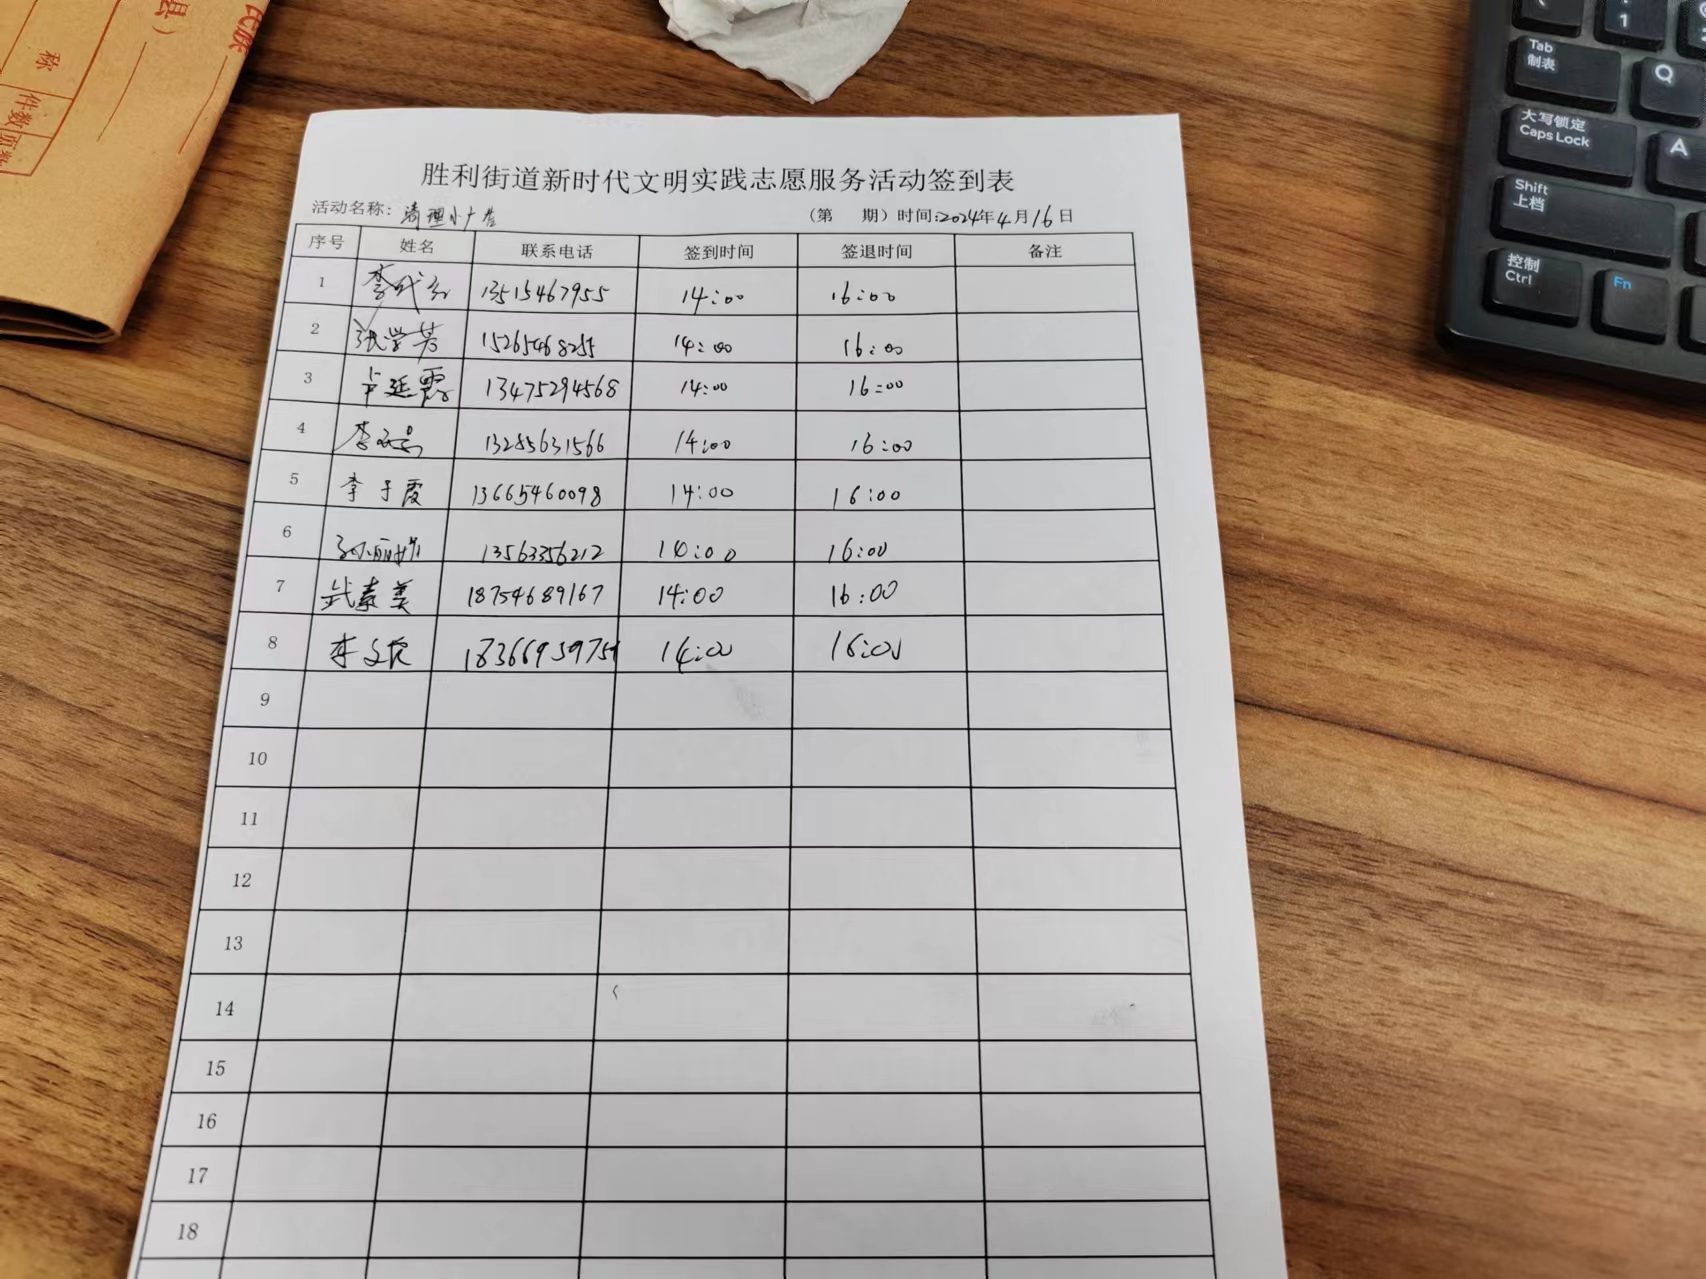 民族
县)
称
件数
胜利街道新时代文明实践志愿服务活动签到表
活动名称: 清理小广告 (第 期) 时间:2024年4月16日
序号 姓名 联系电话 签到时间 签退时间 备注
1 13515467955 14:00 16:00
2 张学芳 15265468255 14:00 16:00
3 卢延霞 13475294568 14:00 16:00
4 13285631566 14:00 16:00
5 李于霞 13665460098 14:00 16:00
6 13563356212 14:00 16:00
7 武素美 18754689167 14:00 16:00
8 李文 14:00 16:00
9
10
11
12
13
14
15
16
17
18
1
Tab
制表
Q
大写锁定
Caps Lock
A
Shift
上档
控制
Ctrl
Fn